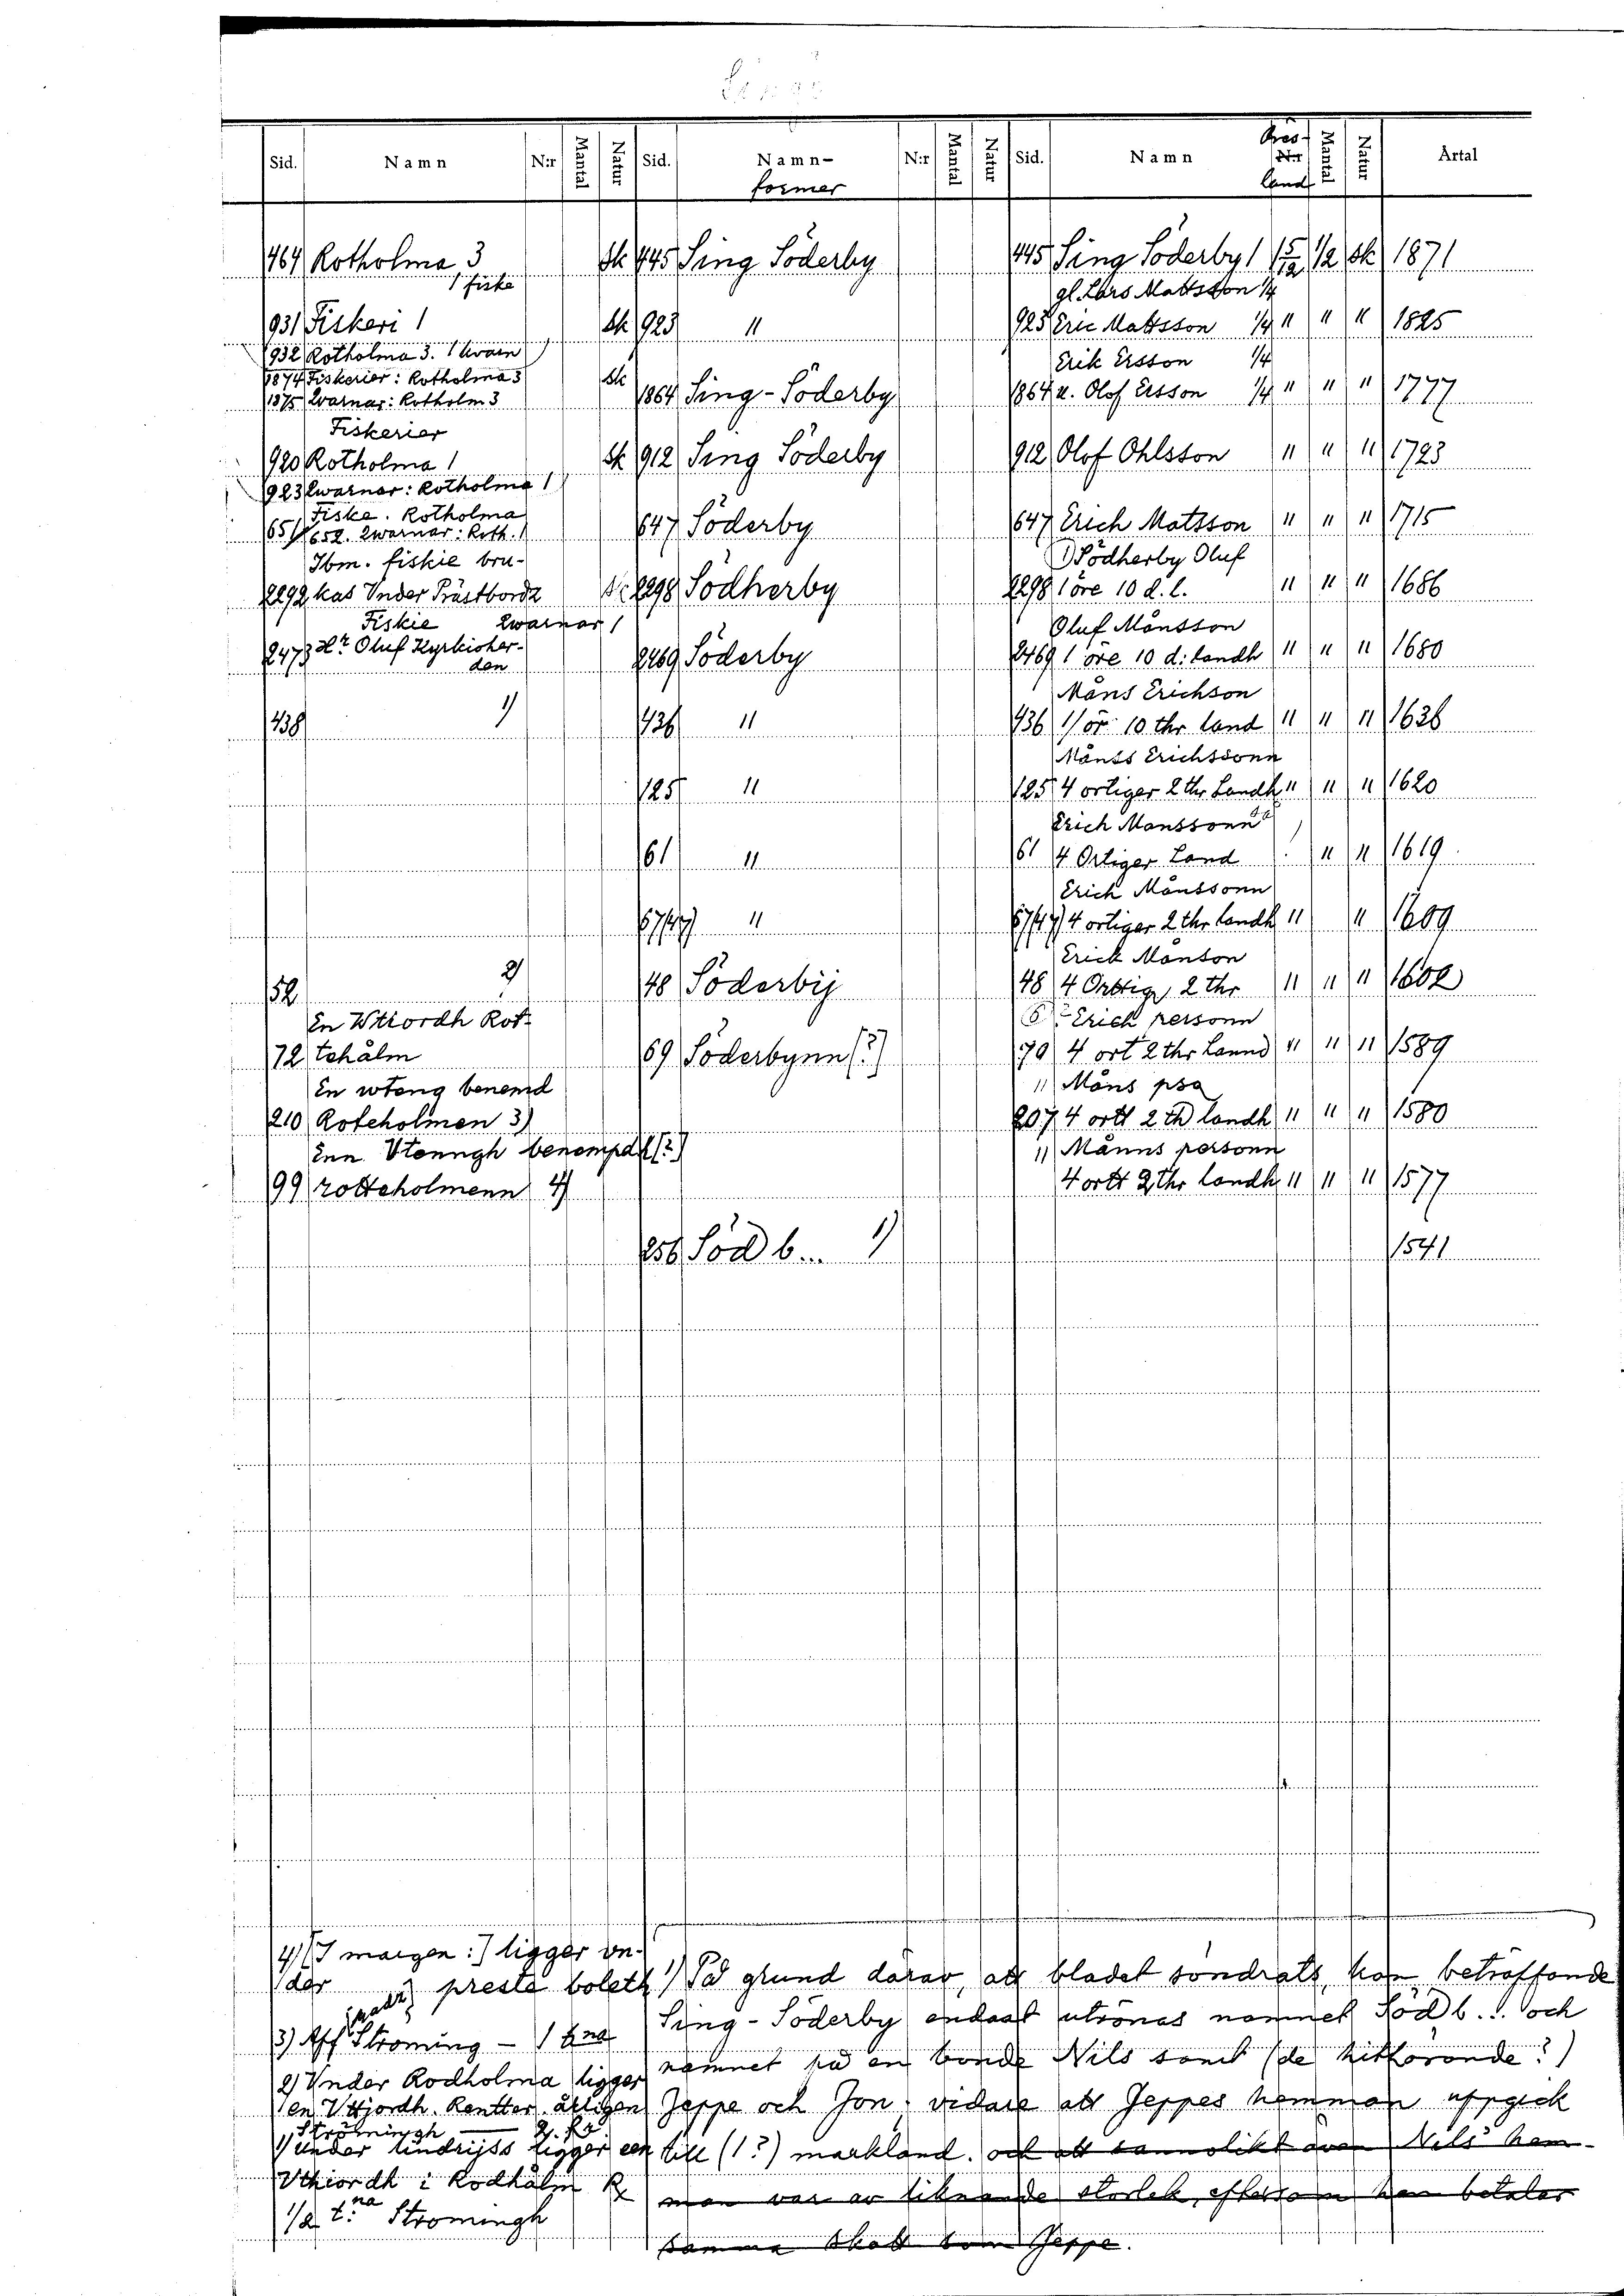 Sid. Namn N:r Mantal Natur Sid. Namn- former N:r Mantal Natur Sid. Namn Öres N:r land Mantal Natur Årtal
464 Rotholma 3 Sk 445 Sing Söderby 445 Sing Söderby 1 5/12 1/2 Sk 1871
1 fiske gl. Lars Mattsson 1/4
931 Fiskeri 1 Sk 923 " 923 Eric Mattsson 1/4 " " " 1825
932 Rotholma 3. 1 kvarn Erik Ersson 1/4
1874 Fiskerier: Rotholma 3 Sk 1864 Sing-Söderby 1864 u. Olof Ersson 1/4 " " " 1777
1875 Qvarnar: Rotholm 3
Fiskerier
920 Rotholma 1 Sk 912 Sing Söderby 912 Olof Ohlsson " " " 1723
923 Qwarnar: Rotholma 1
Fiske. Rotholma 647 Söderby 647 Erich Matsson " " " 1715
651 652. Qwarnar: Roth. 1
Ibm. fiskie bru- Södherby Oluf
2292 kas Vnder Prästbordz 2298 Södherby 2298 1 öre 10 d. l. " " " 1686
Fiskie Qwarnar 1 Oluf Månsson
2473 Hr Oluf Kyrkioher- den 2469 Söderby 2469 1 öre 10 d: landh " " " 1680
Måns Erichson
438 1) 436 " 436 1 ör: 10 thr land " " " 1626
Månss Erichssonn
125 " 125 4 örtiger 2 thr Landh " " " 1620
Erich Månssonn
61 " 61 4 Örtiger Land " " 1619
Erich Månssonn
67 (47) " 67 (47) 4 örtiger 2 thr landh " " 1609
Erich Månson
52 2) 48 Söderbÿ 48 4 Örttig, 2 thr " " " 1602
En Wttiordh Rot- Erich personn
72 tehålm 69 Söderbynn (?) 70 4 ört 2 thr Lannd " " " 1589
En wtäng benemd " Måns psa
210 Roteholmen 3) 207 4 örtt 2 th landh " " " 1580
Enn Vtenngh benempdh (?) " Månns persönn
99 rotteholmenn 4) 4 ortt 2 thr landh " " " 1577
256 Söd b... 1) 1541
4) [I margen:] ligger vn-
der preste boleth
3) Aff Strömming - 1
2) Vnder Rodholma ligger
en Vttjordh. Rentter årligen
Strömingh
1) under Lindrijss ligger een
Vthiordh i Rodhålm
1/2 t:na Strömingh
1) På grund därav, att bladet söndrats, kan beträffande
Sing-Söderby endast utrönas namnet Söd b... och
namnet på en bonde Nils samt (de hithörande?)
Jeppe och Jon, vidare att Jeppes hemman uppgick
till (1?) markland. och att sannolikt även Nils' hem-
man var av liknande storlek, eftersom han betalar
samma skatt som Jeppe.